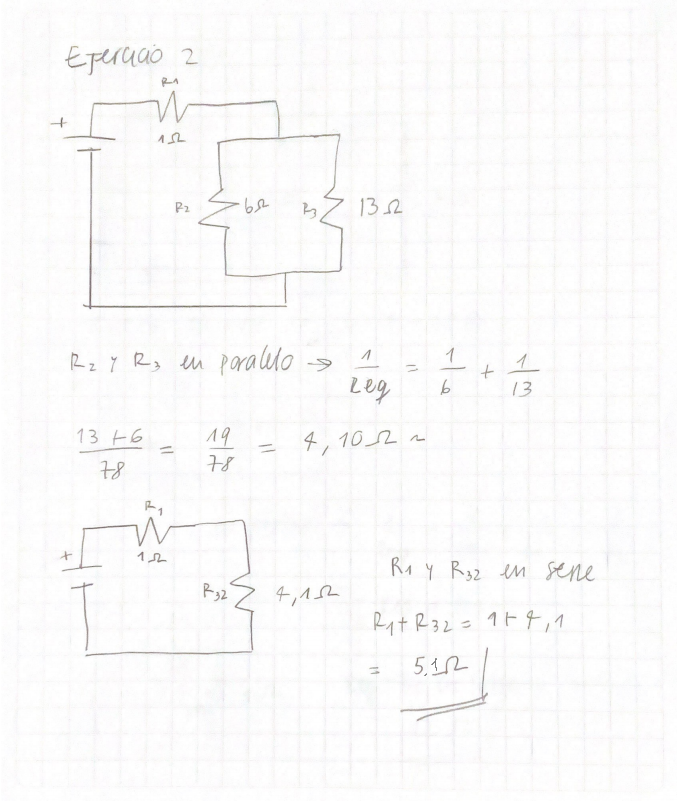 Ejercicio 2
R1
+
1Ω
R2 6Ω R3 13Ω
R2 y R3 en paralelo → 1/Req = 1/6 + 1/13
13+6/78 = 19/78 = 4,10Ω ~
R1
+
1Ω
R32 4,1Ω
R1 y R32 en serie
R1+R32 = 1+4,1
= 5,1Ω